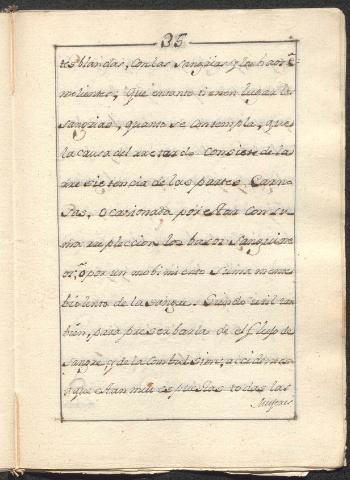 35
tes blandas, con las Sangrias y los baos E-
molientes; Que entanto tienen lugar las
sangrias, quanto se contempla, que
la causa del retardo consiste de la
resistencia de las partes Carno
sas, ocasionada por estar con su
ma repleccion los basos Sanguine
os; ô por un mobimiento Sumamente
biolento de la sangre. Siendo util tam
bien, para preserbarla de el fluxo de
Sangre, y de la Combulsion; accidentes
a que estan mui espuestas todas las
Mugeres